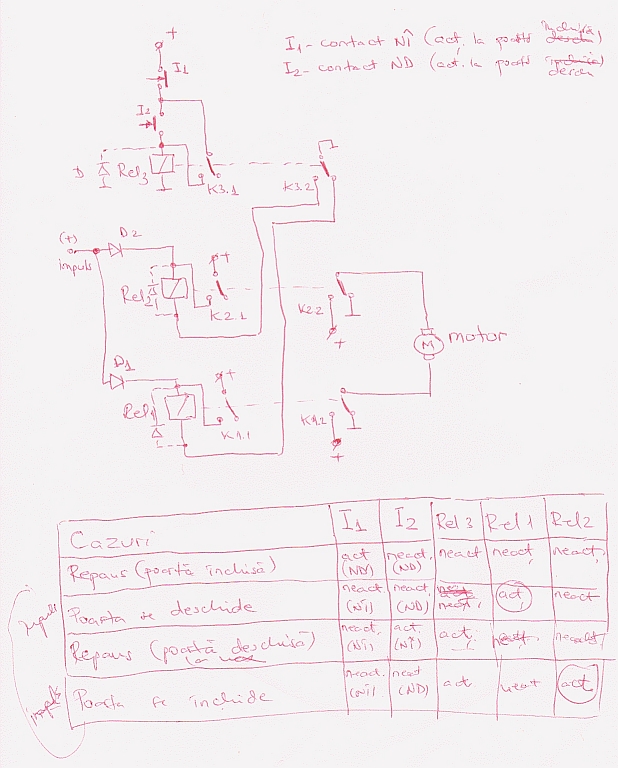 +
I1 - contact NÎ (act. la poartă închisă)
I2 - contact ND (act. la poartă deschi
I1
I2
D
Rel3
K3.1
K3.2
(+)
impuls
D2
+
Rel2
K2.1
K2.2
+
M
motor
D1
+
Rel1
K1.1
K1.2
+
Cazuri I1 I2 Rel3 Rel1 Rel2
Repaus (poartă închisă) act (ND) neact. (ND) neact neact. neact.
impuls
Poarta se deschide neact. (NÎ) neact. (ND) neact. act. neact
Repaus (poartă deschisă) neact. (NÎ) act. (NÎ) act. neact. neact.
impuls
Poarta se închide neact. (NÎ) neact (ND) act neact act